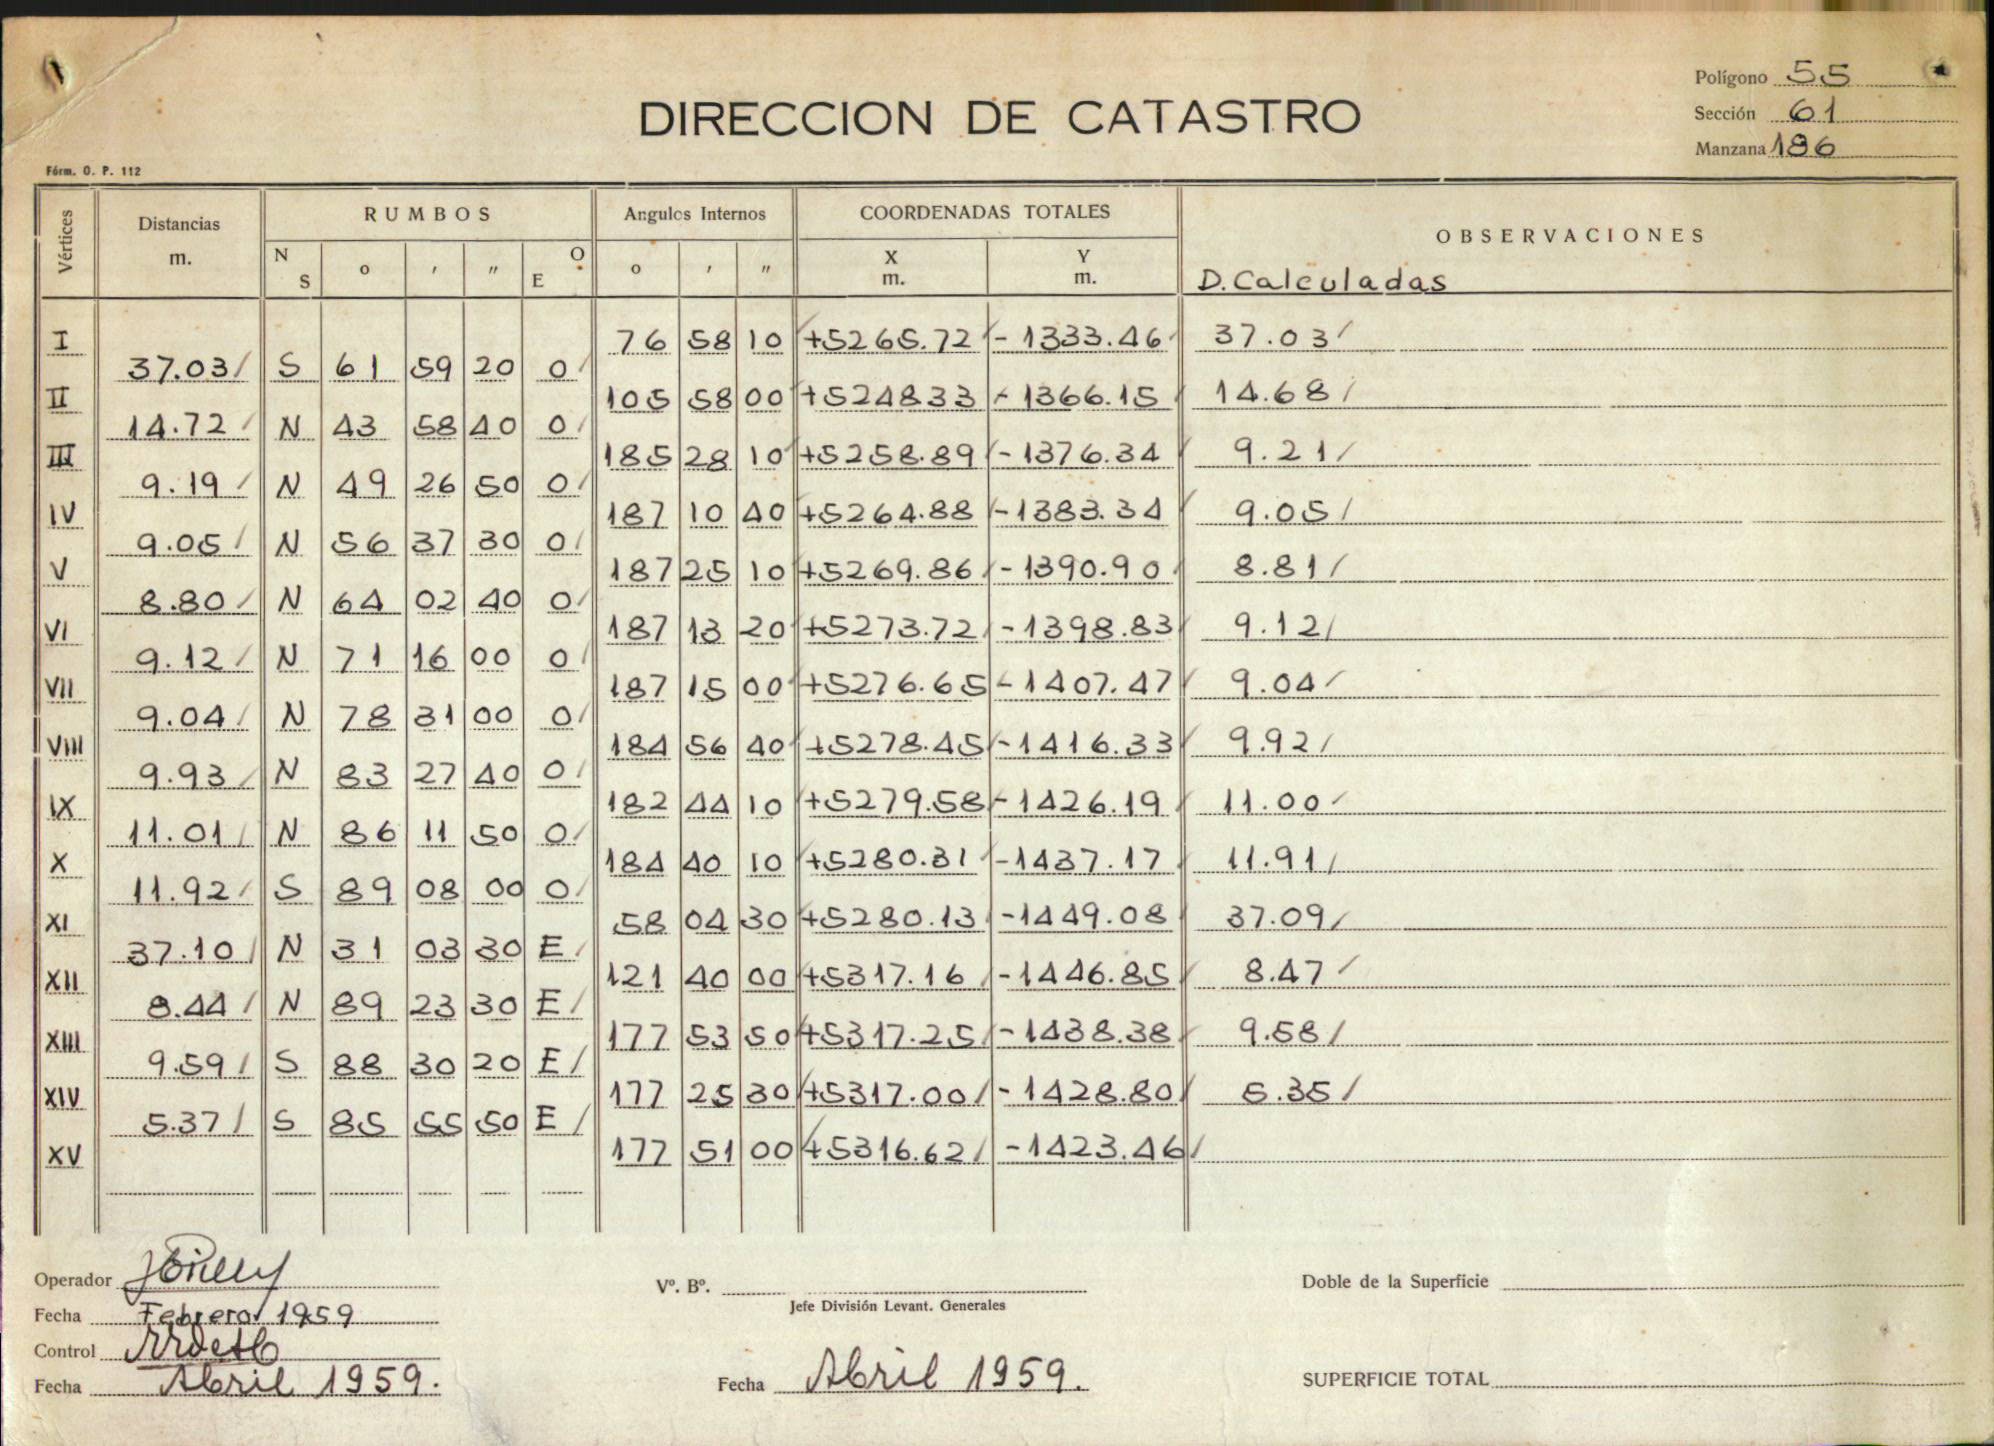 Polígono 55
DIRECCION DE CATASTRO
Sección 61
Manzana 186
Fórm. O. P. 112
Vértices Distancias m. RUMBOS Angulos Internos COORDENADAS TOTALES OBSERVACIONES
N S o ' " E O o ' " X m. Y m. D. Calculadas
I 76 58 10 +5265.72 - 1333.46 37.03
37.03 S 61 59 20 O
II 105 58 00 +5248.33 - 1366.15 14.68
14.72 N 43 58 40 O
III 185 28 10 +5258.89 - 1376.34 9.21
9.19 N 49 26 50 O
IV 187 10 40 +5264.88 - 1383.34 9.05
9.05 N 56 37 30 O
V 187 25 10 +5269.86 - 1390.90 8.81
8.80 N 64 02 40 O
VI 187 13 20 +5273.72 - 1398.83 9.12
9.12 N 71 16 00 O
VII 187 15 00 +5276.65 - 1407.47 9.04
9.04 N 78 31 00 O
VIII 184 56 40 +5278.45 - 1416.33 9.92
9.93 N 83 27 40 O
IX 182 44 10 +5279.58 - 1426.19 11.00
11.01 N 86 11 50 O
X 184 40 10 +5280.31 - 1437.17 11.91
11.92 S 89 08 00 O
XI 58 04 30 +5280.13 - 1449.08 37.09
37.10 N 31 03 30 E
XII 121 40 00 +5317.16 - 1446.85 8.47
8.44 N 89 23 30 E
XIII 177 53 50 +5317.25 - 1438.38 9.58
9.59 S 88 30 20 E
XIV 177 25 30 +5317.00 - 1428.80 5.35
5.37 S 85 55 50 E
XV 177 51 00 +5316.62 - 1423.46
Operador
Vº. Bº.
Doble de la Superficie
Fecha Febrero 1959
Jefe División Levant. Generales
Control
Fecha Abril 1959.
Fecha Abril 1959.
SUPERFICIE TOTAL